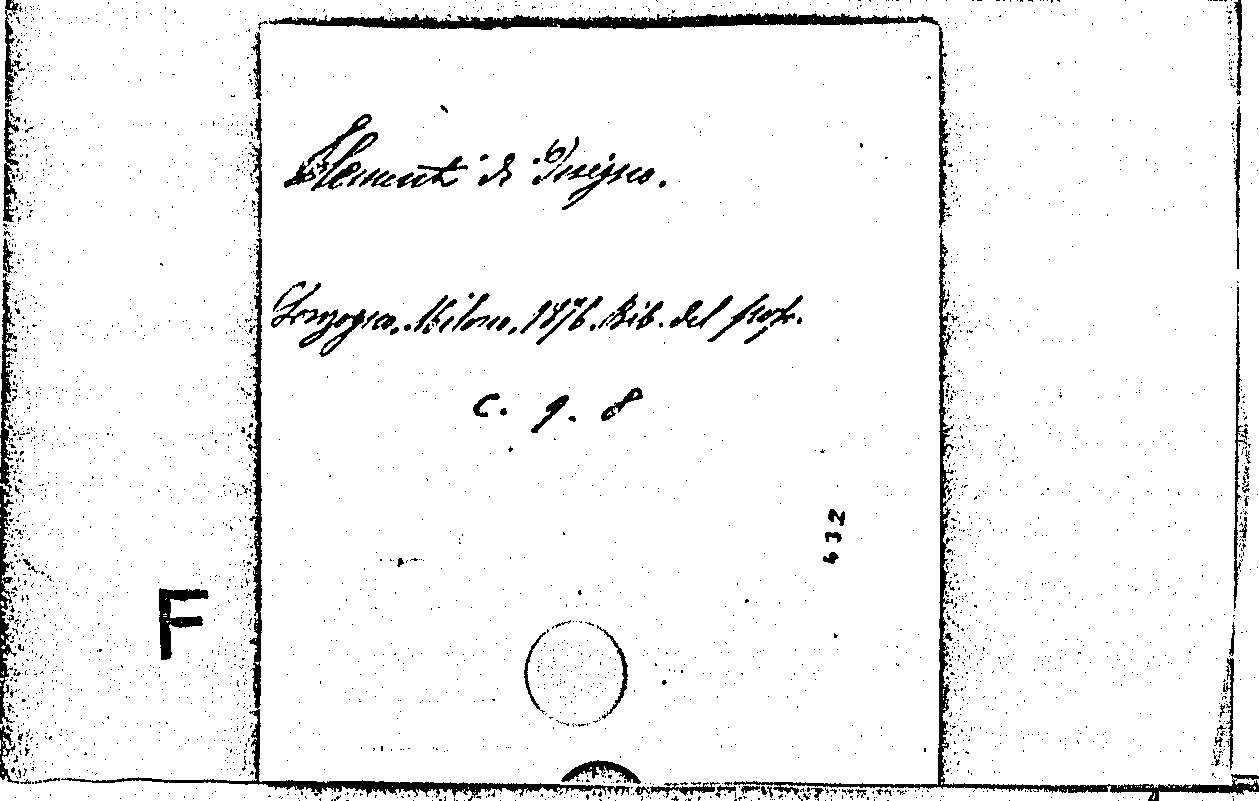 Elementi di Disegno.
Gorgogna. Milano. 1876. Bib. del prof.
C. 9. 8
432
F